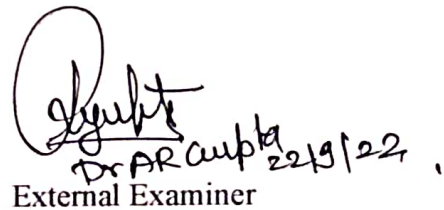 Dr AR Gupta 22/9/22
External Examiner